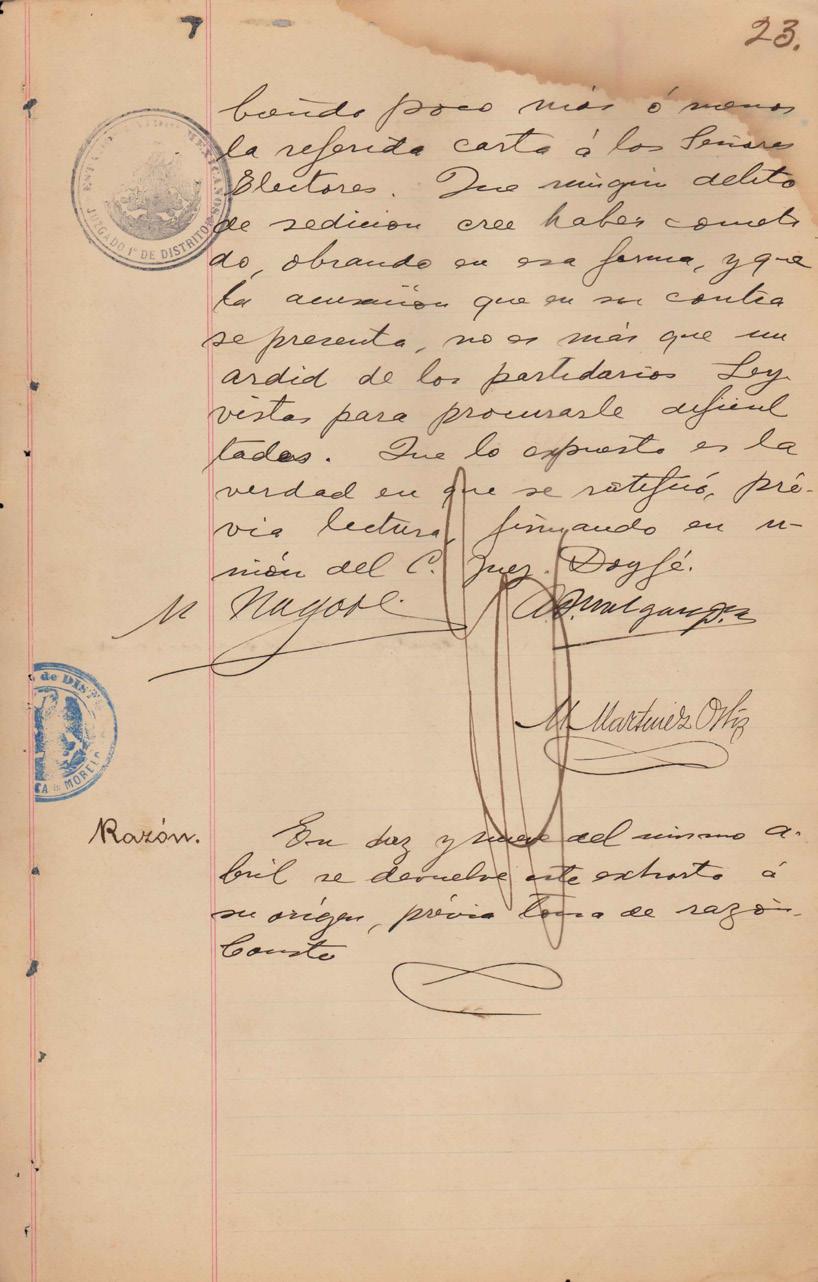 23.
poco más ó menos
la referida carta á los Señores
Electores. Que ningún delito
de sedicion cree haber cometi
do, obrando en esa forma, y que
la acusación que en su contra
se presenta, no es más que un
ardid de los partidarios Ley
vistas para procurarle dificul
tades. Que lo expuesto es la
verdad en que se ratificó, pré-
via lectura, firmando en u-
nión del C. Juez. Doy fé.
M
M. Martinez Ortiz
Razón.
En diez y nueve del mismo a-
bril se devuelve este exhorto á
su orígen, prévia toma de razón.
Conste
ESTADOS UNIDOS MEXICANOS
JUZGADO 1º DE DISTRITO
de DIST
MOREL